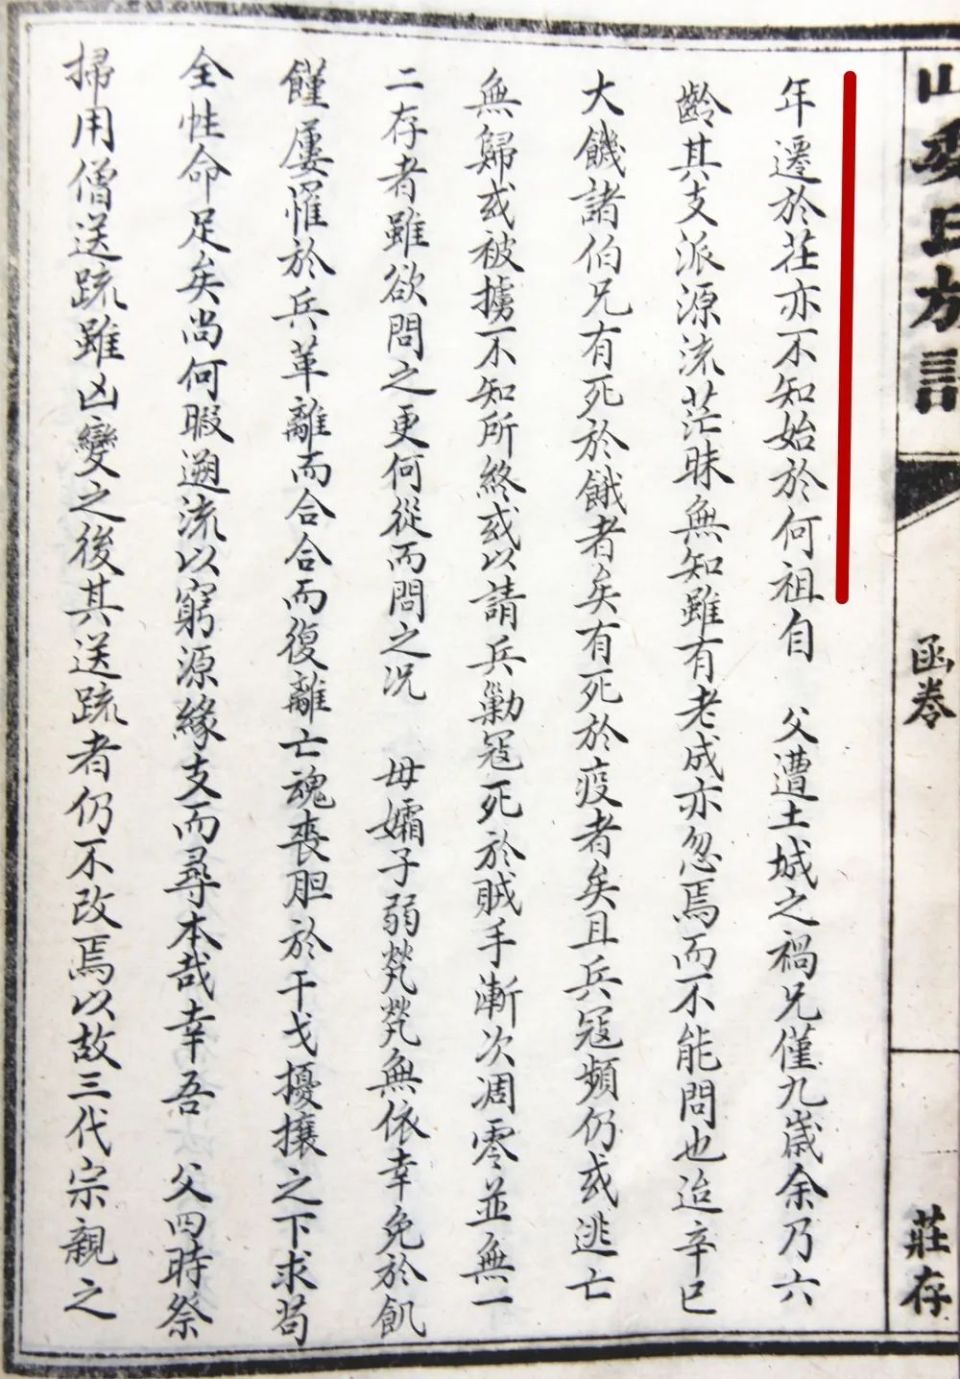 山婁氏族譜
函卷
莊存
年遷於莊亦不知始於何祖自 父遭土城之禍兄僅九歲余乃六
齡其支派源流茫昧無知雖有老成亦忽焉而不能問也迨辛巳
大饑諸伯兄有死於餓者矣有死於疫者矣且兵冦頻仍或逃亡
無歸或被擄不知所終或以請兵勦冦死於賊手漸次凋零並無一
二存者雖欲問之更何從而問之况 母孀子弱煢煢無依幸免於飢
饉屢罹於兵革離而合合而復離亡魂喪胆於干戈擾攘之下求苟
全性命足矣尚何暇遡流以窮源緣支而尋本哉幸吾 父四時祭
掃用僧送䟽雖凶變之後其送䟽者仍不改焉以故三代宗親之